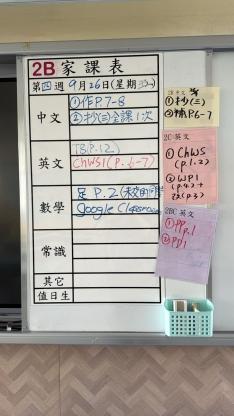 2B 家課表
第四週 9月26日(星期
中文
①作P.7-8
②抄(三)全課1次
英文
CHWS1(P.6-7)
數學
足 P.2
Google Classroom
常識
其它
值日生
①抄(三)
②補P.6-7
2C 英文
① CHWS
(p.1.2)
② WP1
(p.4)+
(p.3)
2BC 英文
① PP.1
② PD1